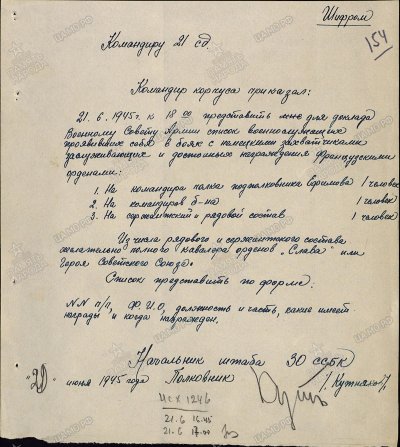 Шифром
154
Командиру 21 сд.
Командир корпуса приказал:
21.6.1945 г. к 18 00 представить мне для доклада
Военному Совету Армии список военнослужащих
проявивших себя в боях с немецкими захватчиками
заслуживающих и достойных награждения Французскими
орденами:
1. На командира полка подполковника Ефремова 1 человек
2. На командиров б-на 1 человек
3. На сержантский и рядовой состав 1 человек
Из числа рядового и сержантского состава
желательно полного кавалера орденов „Слава" или
Героя Советского Союза.
Список представить по форме:
NN п/п, Ф.И.О, должность и часть, какие имеет
награды и когда награжден.
Начальник штаба 30 ССБК
"21" июня 1945 года Полковник
исх 1246
21.6 16.45
21.6 17.00
ЦАМО.РФ